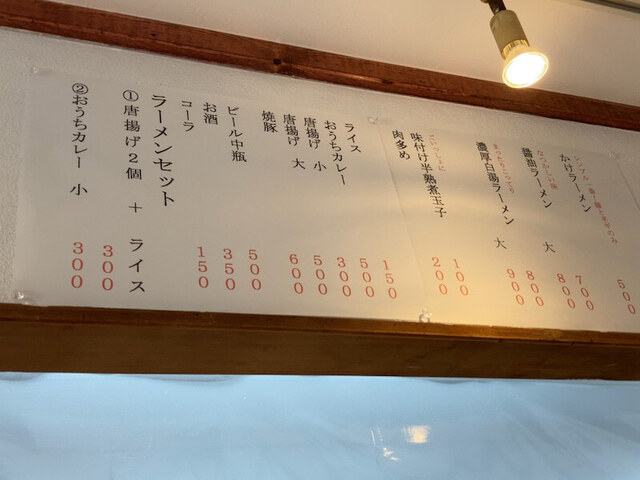 シンプル一番!麺とネギのみ
かけラーメン 500
なつかしい味
醤油ラーメン 700
大 800
まったりこってり
濃厚白湯ラーメン 800
大 900
ごいっしょに
味付け半熟煮玉子 100
肉多め 200
ライス 150
おうちカレー 500
唐揚げ 小 300
唐揚げ 大 500
焼豚 600
ビール中瓶 500
お酒 350
コーラ 150
ラーメンセット
①唐揚げ2個 + ライス 300
②おうちカレー 小 300